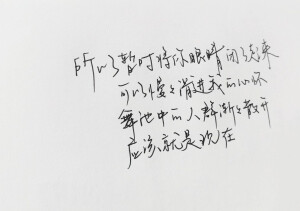 所以暂时将你眼睛闭了起来
可以慢々滑进我的心怀
舞池中的人群渐々散开
应该就是现在